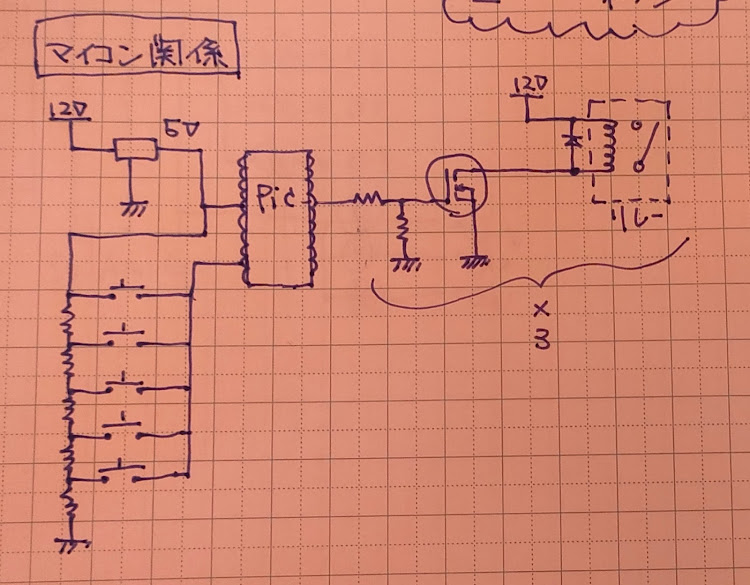 マイコン関係
12V
5V
Pic
12V
リレー
×
3